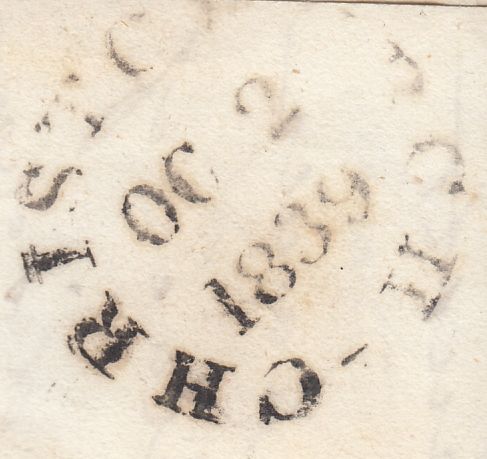 CHRISTC CH
OC 2
1839